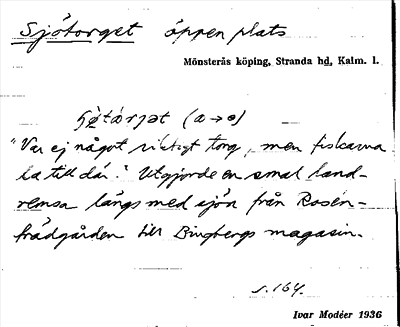 Sjötorget öppen plats
Mönsterås köping, Stranda hd, Kalm. l.
(a → ə)
"Var ej något riktigt torg, men fiskarna
la till där." Utgjorde en smal land-
remsa längs med sjön från Rosén-
trädgården till Bingbergs magasin.
s. 164.
Ivar Modéer 1936